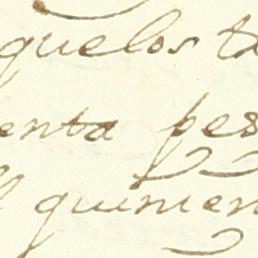 quelos t
enta pes
quinien